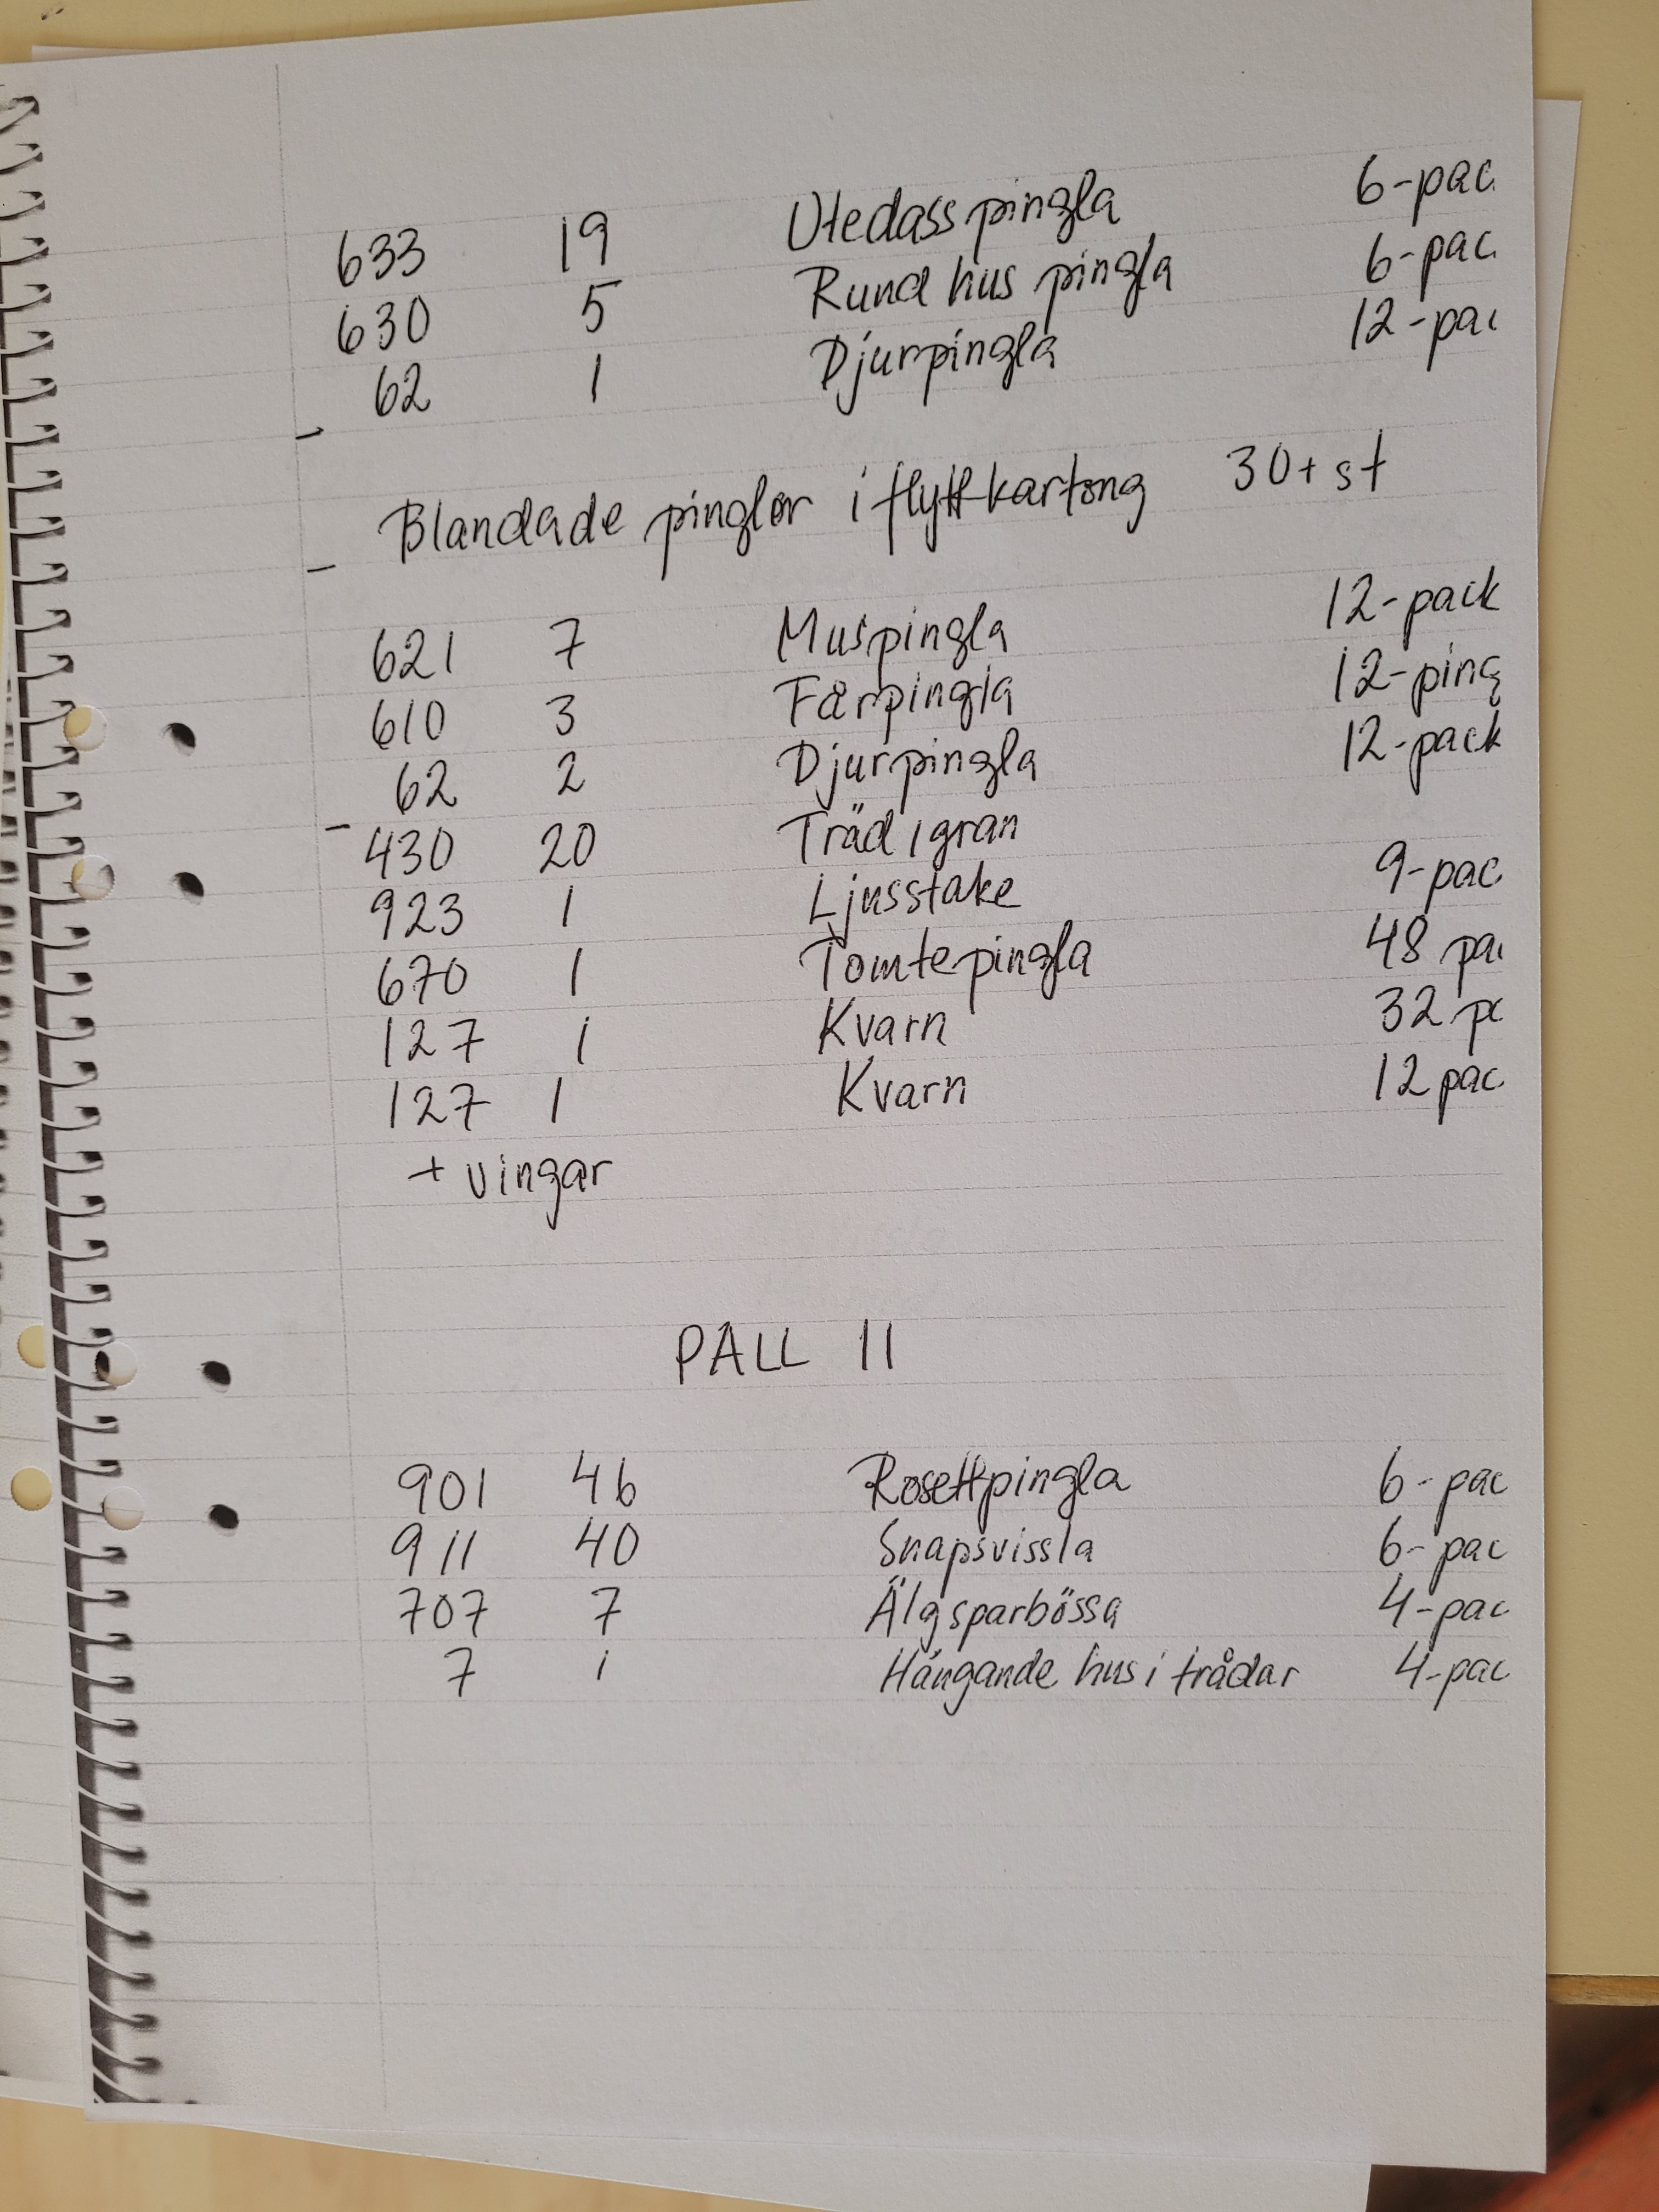 633 19 Utedasspingla 6-pac
630 5 Rund hus pingla 6-pac
62 1 Djurpingla 12-pac
Blandade pinglor i flyttkartong 30+ st
621 7 Muspingla 12-pack
610 3 Fårpingla 12-ping
62 2 Djurpingla 12-pack
430 20 Träd / gran
923 1 Ljusstake 9-pac
670 1 Tomtepingla 48 pa
127 1 Kvarn 32 p
127 1 Kvarn 12 pac
+ vingar
PALL 11
901 46 Rosettpingla 6-pac
911 40 Snapsvissla 6-pac
707 7 Älgsparbössa 4-pac
7 1 Hängande hus i trådar 4-pac